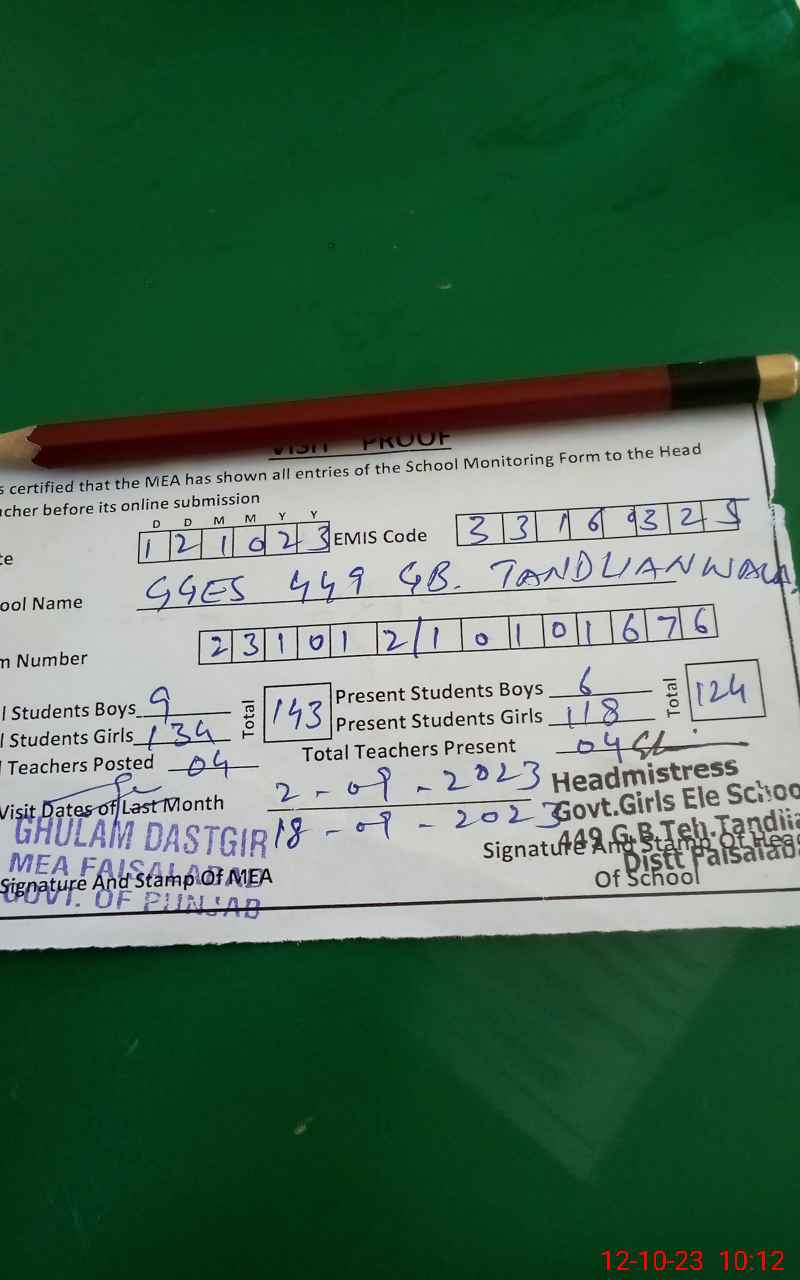 VISIT PROOF
s certified that the MEA has shown all entries of the School Monitoring Form to the Head
cher before its online submission
D D M M Y Y
te 1 2 1 0 2 3 EMIS Code 3 3 1 6 9 3 2 5
ool Name GGES 449 GB. TANDLIANWALA
m Number 2 3 1 0 1 2 1 0 1 0 1 6 7 6
l Students Boys 9 Total 143 Present Students Boys 6 Total 124
l Students Girls 134 Present Students Girls 118
l Teachers Posted 04 Total Teachers Present 04
Visit Dates of Last Month 2-09-2023
18-09-2023
Headmistress
Govt.Girls Ele Schoo
449 G.B.Teh.Tandlia
Distt Faisalab
GHULAM DASTGIR
MEA FAISALABAD
GOVT. OF PUNJAB
Signature And Stamp Of MEA
Signature And Stamp Of Hea
Of School
12-10-23 10:12